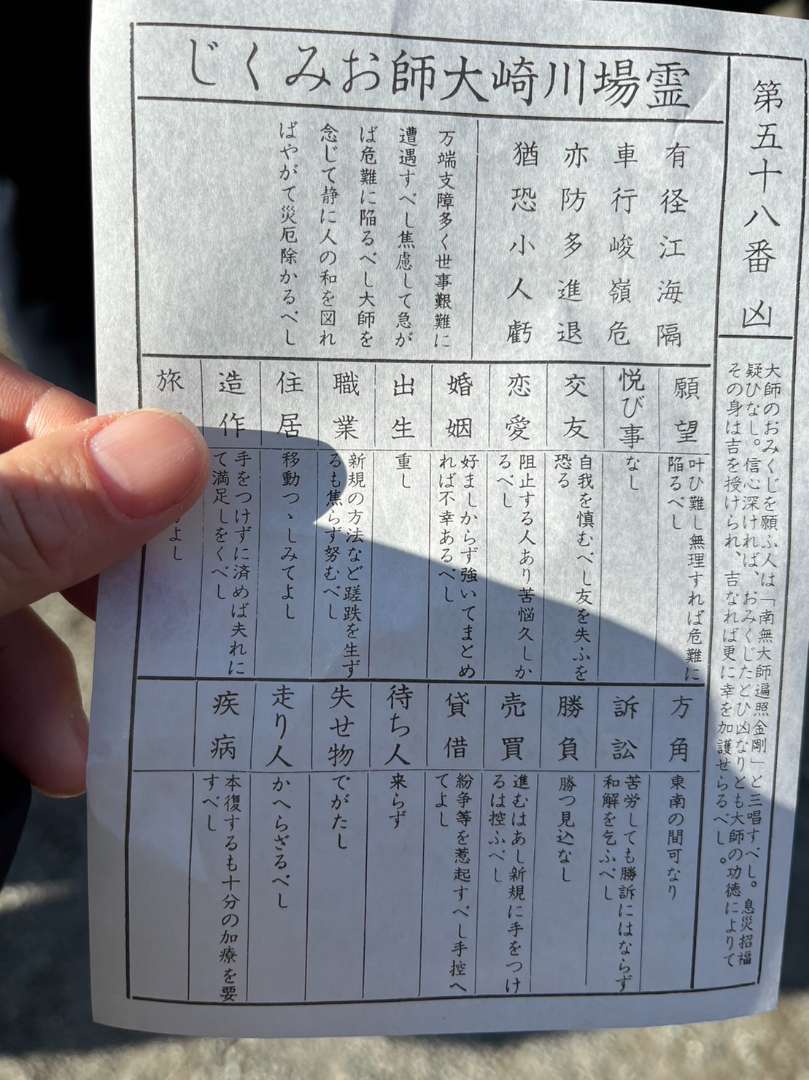 霊場川崎大師おみくじ
第五十八番 凶
大師のおみくじを願ふ人は「南無大師遍照金剛」と三唱すべし。息災招福
疑ひなし。信心深ければ、おみくじたとひ凶なりとも大師の功徳によりて
その身は吉を授けられ、吉なれば更に幸を加護せらるべし。
有径江海隔
車行峻嶺危
亦防多進退
猶恐小人虧
万端支障多く世事艱難に
遭遇すべし焦慮して急が
ば危難に陥るべし大師を
念じて静に人の和を図れ
ばやがて災厄除かるべし
願望
叶ひ難し無理すれば危難に
陥るべし
悦び事
なし
交友
自我を慎むべし友を失ふを
恐る
恋愛
阻止する人あり苦悩久しか
るべし
婚姻
好ましからず強いてまとめ
れば不幸あるべし
出生
重し
職業
新規の方法など蹉跌を生ず
るも焦らず努むべし
住居
移動つゝしみてよし
造作
手をつけずに済めば夫れに
て満足しをくべし
旅
よし
方角
東南の間可なり
訴訟
苦労しても勝訴にはならず
和解を乞ふべし
勝負
勝つ見込なし
売買
進むはあし新規に手をつけ
るは控ふべし
貸借
紛争等を惹起すべし手控へ
てよし
待ち人
来らず
失せ物
でがたし
走り人
かへらざるべし
疾病
本復するも十分の加療を要
すべし